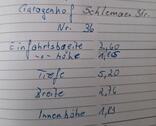 Garagenhof Schleman Str.
Nr. 36
Einfahrtsbreite 2,40
-"- höhe 1,85
Tiefe 5,20
Breite 2,76
Innenhöhe 1,89